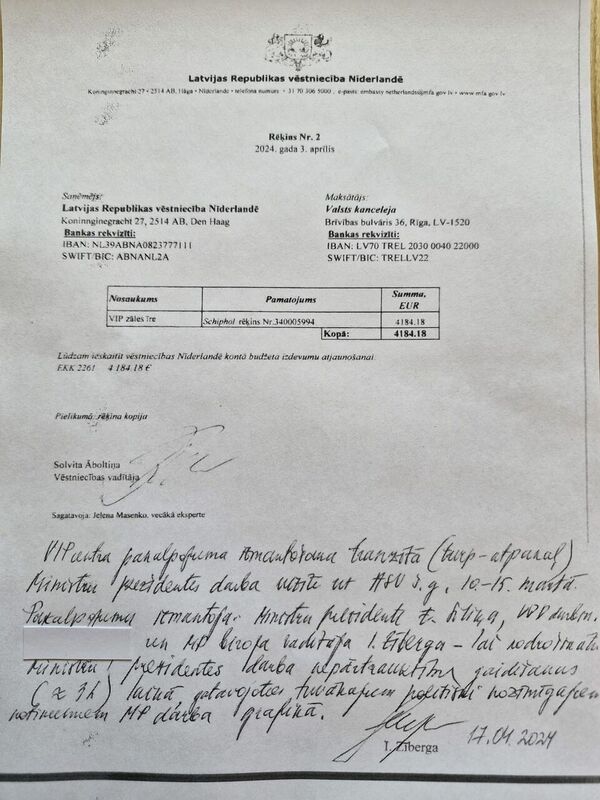 Latvijas Republikas vēstniecība Nīderlandē
Koninnegracht 27 • 2514 AB, Hāga • Nīderlande • telefona numurs • 31 70 306 5000, e-pasts: embassy.netherlands@mfa.gov.lv • www.mfa.gov.lv
Rēķins Nr. 2
2024. gada 3. aprīlis
Saņēmējs:
Latvijas Republikas vēstniecība Nīderlandē
Koninnginegracht 27, 2514 AB, Den Haag
Bankas rekvizīti:
IBAN: NL39ABNA0823777111
SWIFT/BIC: ABNANL2A
Maksātājs:
Valsts kanceleja
Brīvības bulvāris 36, Rīga, LV-1520
Bankas rekvizīti:
IBAN: LV70 TREL 2030 0040 22000
SWIFT/BIC: TRELLV22
Nosaukums Pamatojums Summa, EUR
VIP zāles īre Schiphol rēķins Nr.340005994 4184.18
Kopā: 4184.18
Lūdzam ieskaitīt vēstniecības Nīderlandē kontā budžeta izdevumu atjaunošanai.
EKK 2261 4 184.18 €
Pielikumā: rēķina kopija
Solvita Āboltiņa
Vēstniecības vadītāja
Sagatavoja: Jeļena Masenko, vecākā eksperte
VIP centra pakalpojuma izmantošana tranzītā (turp-atpakaļ)
Ministru prezidentes darba vizītē uz ASV š.g. 10.-15. martā.
Pakalpojumu izmantoja: Ministru prezidente E. Siliņa,
un MP biroja vadītāja I. Ziberga – lai nodrošinātu
Ministru prezidentes darba nepārtrauktību gaidīšanas
(≈ 3h) laikā gatavojoties tuvākajiem politiski nozīmīgajiem
notikumiem MP darba grafikā.
I. Ziberga 17.04.2024